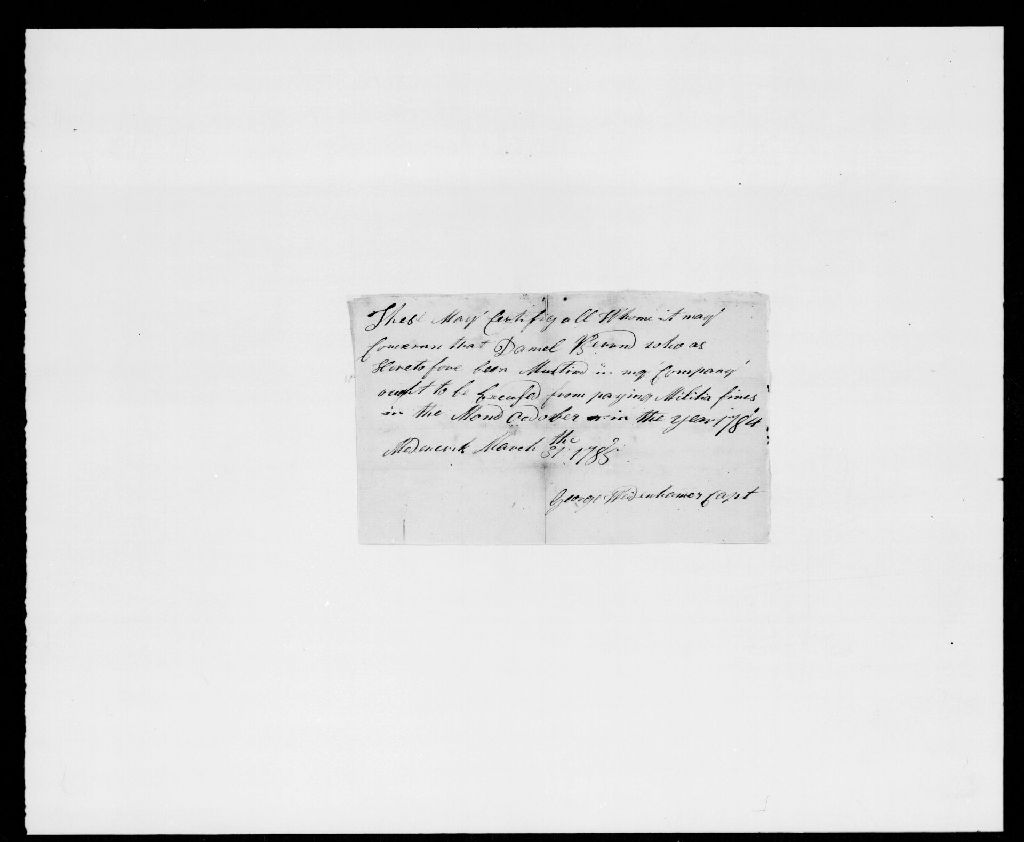 These May Certify all Whome it may
Conceran that Daniel who as
Heretofore been Mustird in my Company
ought to be Excused from paying Militia fines
in the Mond October in the year 1784
March the 31 1785
George Widenhamer Capt